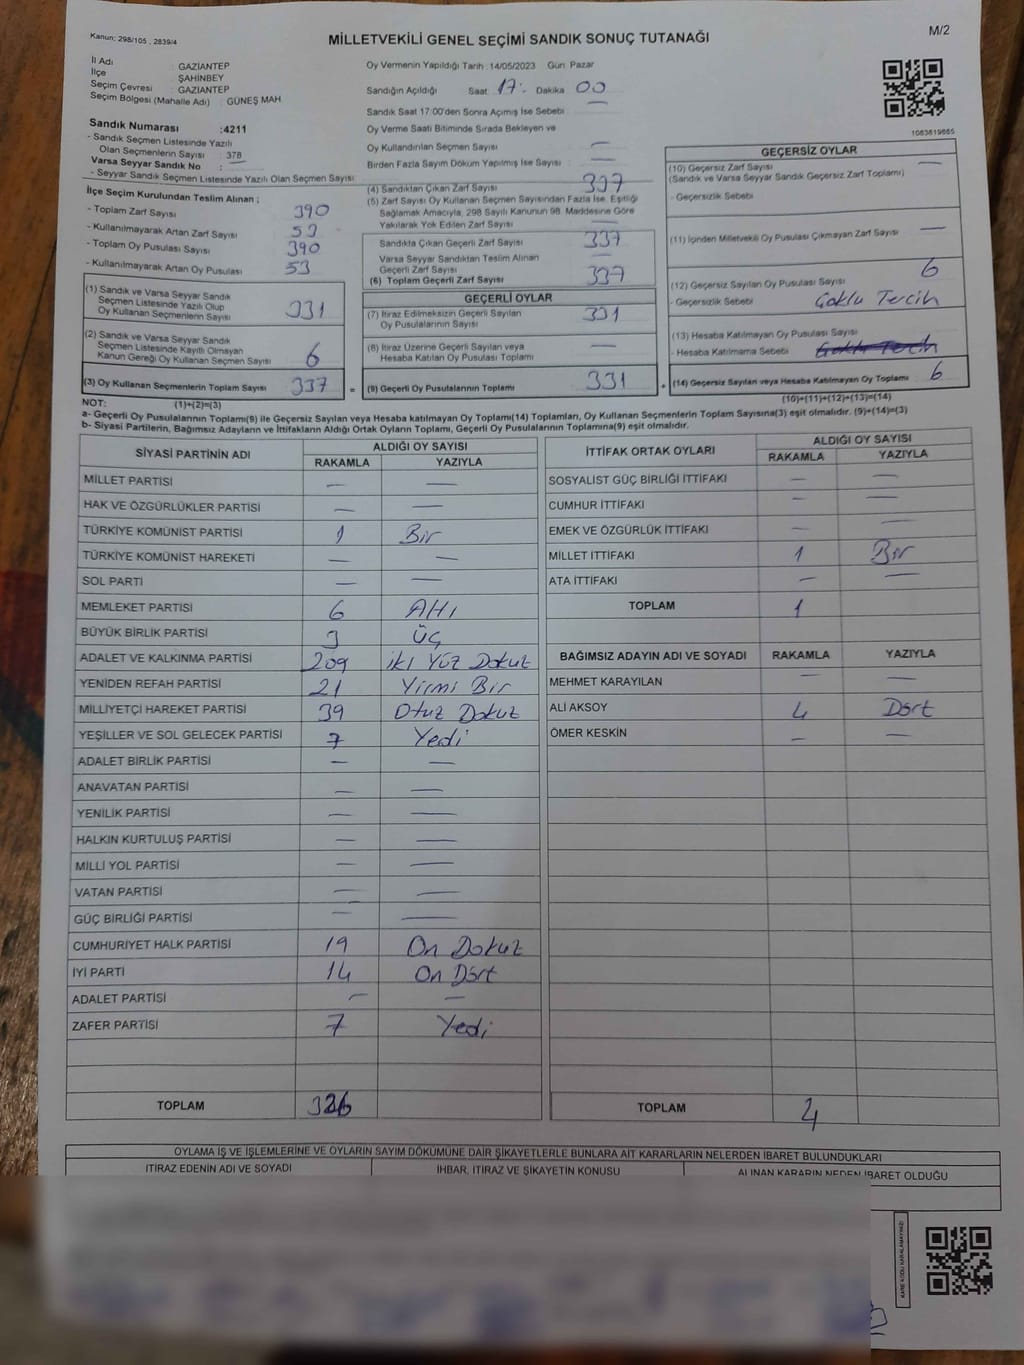 Kanun: 298/105 , 2839/4
MİLLETVEKİLİ GENEL SEÇİMİ SANDIK SONUÇ TUTANAĞI
M/2
İl Adı : GAZİANTEP
İlçe ŞAHİNBEY
Seçim Çevresi : GAZİANTEP
Seçim Bölgesi (Mahalle Adı) : GÜNEŞ MAH
Oy Vermenin Yapıldığı Tarih : 14/05/2023 Gün: Pazar
Sandığın Açıldığı Saat 17: Dakika 00
Sandık Saat 17:00'den Sonra Açımış İse Sebebi —
Oy Verme Saati Bitiminde Sırada Bekleyen ve
Oy Kullandırılan Seçmen Sayısı —
Birden Fazla Sayım Döküm Yapılmış İse Sayısı —
1083619865
Sandık Numarası :4211
- Sandık Seçmen Listesinde Yazılı
Olan Seçmenlerin Sayısı : 378
Varsa Seyyar Sandık No : —
- Seyyar Sandık Seçmen Listesinde Yazılı Olan Seçmen Sayısı
İlçe Seçim Kurulundan Teslim Alınan ;
- Toplam Zarf Sayısı 390
- Kullanılmayarak Artan Zarf Sayısı 53
- Toplam Oy Pusulası Sayısı 390
- Kullanılmayarak Artan Oy Pusulası 53
(1) Sandık ve Varsa Seyyar Sandık
Seçmen Listesinde Yazılı Olup
Oy Kullanan Seçmenlerin Sayısı 331
(2) Sandık ve Varsa Seyyar Sandık
Seçmen Listesinde Kayıtlı Olmayan
Kanun Gereği Oy Kullanan Seçmen Sayısı 6
(3) Oy Kullanan Seçmenlerin Toplam Sayısı 337
(4) Sandıktan Çıkan Zarf Sayısı 337
(5) Zarf Sayısı Oy Kullanan Seçmen Sayısından Fazla İse, Eşitliği
Sağlamak Amacıyla, 298 Sayılı Kanunun 98. Maddesine Göre
Yakılarak Yok Edilen Zarf Sayısı —
Sandıkta Çıkan Geçerli Zarf Sayısı 337
Varsa Seyyar Sandıktan Teslim Alınan
Geçerli Zarf Sayısı —
(6) Toplam Geçerli Zarf Sayısı 337
GEÇERLİ OYLAR
(7) İtiraz Edilmeksizin Geçerli Sayılan
Oy Pusulalarının Sayısı 331
(8) İtiraz Üzerine Geçerli Sayılan veya
Hesaba Katılan Oy Pusulası Toplamı —
= (9) Geçerli Oy Pusulalarının Toplamı 331
GEÇERSİZ OYLAR
(10) Geçersiz Zarf Sayısı —
(Sandık ve Varsa Seyyar Sandık Geçersiz Zarf Toplamı)
- Geçersizlik Sebebi
(11) İçinden Milletvekili Oy Pusulası Çıkmayan Zarf Sayısı —
(12) Geçersiz Sayılan Oy Pusulası Sayısı 6
- Geçersizlik Sebebi Çoklu Tercih
(13) Hesaba Katılmayan Oy Pusulası Sayısı
- Hesaba Katılmama Sebebi
+ (14) Geçersiz Sayılan veya Hesaba Katılmayan Oy Toplamı 6
NOT: (1)+(2)=(3)
(10)+(11)+(12)+(13)=(14)
a- Geçerli Oy Pusulalarının Toplamı(9) ile Geçersiz Sayılan veya Hesaba katılmayan Oy Toplamı(14) Toplamları, Oy Kullanan Seçmenlerin Toplam Sayısına(3) eşit olmalıdır. (9)+(14)=(3)
b- Siyasi Partilerin, Bağımsız Adayların ve İttifakların Aldığı Ortak Oyların Toplamı, Geçerli Oy Pusulalarının Toplamına(9) eşit olmalıdır.
SİYASİ PARTİNİN ADI ALDIĞI OY SAYISI
RAKAMLA YAZIYLA
MİLLET PARTİSİ — —
HAK VE ÖZGÜRLÜKLER PARTİSİ — —
TÜRKİYE KOMÜNİST PARTİSİ 1 Bir
TÜRKİYE KOMÜNİST HAREKETİ — —
SOL PARTİ — —
MEMLEKET PARTİSİ 6 AltI
BÜYÜK BİRLİK PARTİSİ 3 ÜÇ
ADALET VE KALKINMA PARTİSİ 209 iki Yüz Dokuz
YENİDEN REFAH PARTİSİ 21 Yirmi Bir
MİLLİYETÇİ HAREKET PARTİSİ 39 Otuz Dokuz
YEŞİLLER VE SOL GELECEK PARTİSİ 7 Yedi
ADALET BİRLİK PARTİSİ — —
ANAVATAN PARTİSİ — —
YENİLİK PARTİSİ — —
HALKIN KURTULUŞ PARTİSİ — —
MİLLİ YOL PARTİSİ — —
VATAN PARTİSİ — —
GÜÇ BİRLİĞİ PARTİSİ — —
CUMHURİYET HALK PARTİSİ 19 On Dokuz
İYİ PARTİ 14 On Dört
ADALET PARTİSİ — —
ZAFER PARTİSİ 7 Yedi
TOPLAM 326
İTTİFAK ORTAK OYLARI ALDIĞI OY SAYISI
RAKAMLA YAZIYLA
SOSYALİST GÜÇ BİRLİĞİ İTTİFAKI — —
CUMHUR İTTİFAKI — —
EMEK VE ÖZGÜRLÜK İTTİFAKI — —
MİLLET İTTİFAKI 1 Bir
ATA İTTİFAKI — —
TOPLAM 1
BAĞIMSIZ ADAYIN ADI VE SOYADI RAKAMLA YAZIYLA
MEHMET KARAYILAN — —
ALİ AKSOY 4 Dört
ÖMER KESKİN — —
TOPLAM 4
OYLAMA İŞ VE İŞLEMLERİNE VE OYLARIN SAYIM DÖKÜMÜNE DAİR ŞİKAYETLERLE BUNLARA AİT KARARLARIN NELERDEN İBARET BULUNDUKLARI
İTİRAZ EDENİN ADI VE SOYADI İHBAR, İTİRAZ VE ŞİKAYETİN KONUSU ALINAN KARARIN NEDEN İBARET OLDUĞU
KARE KODU KARALAMAYINIZ!